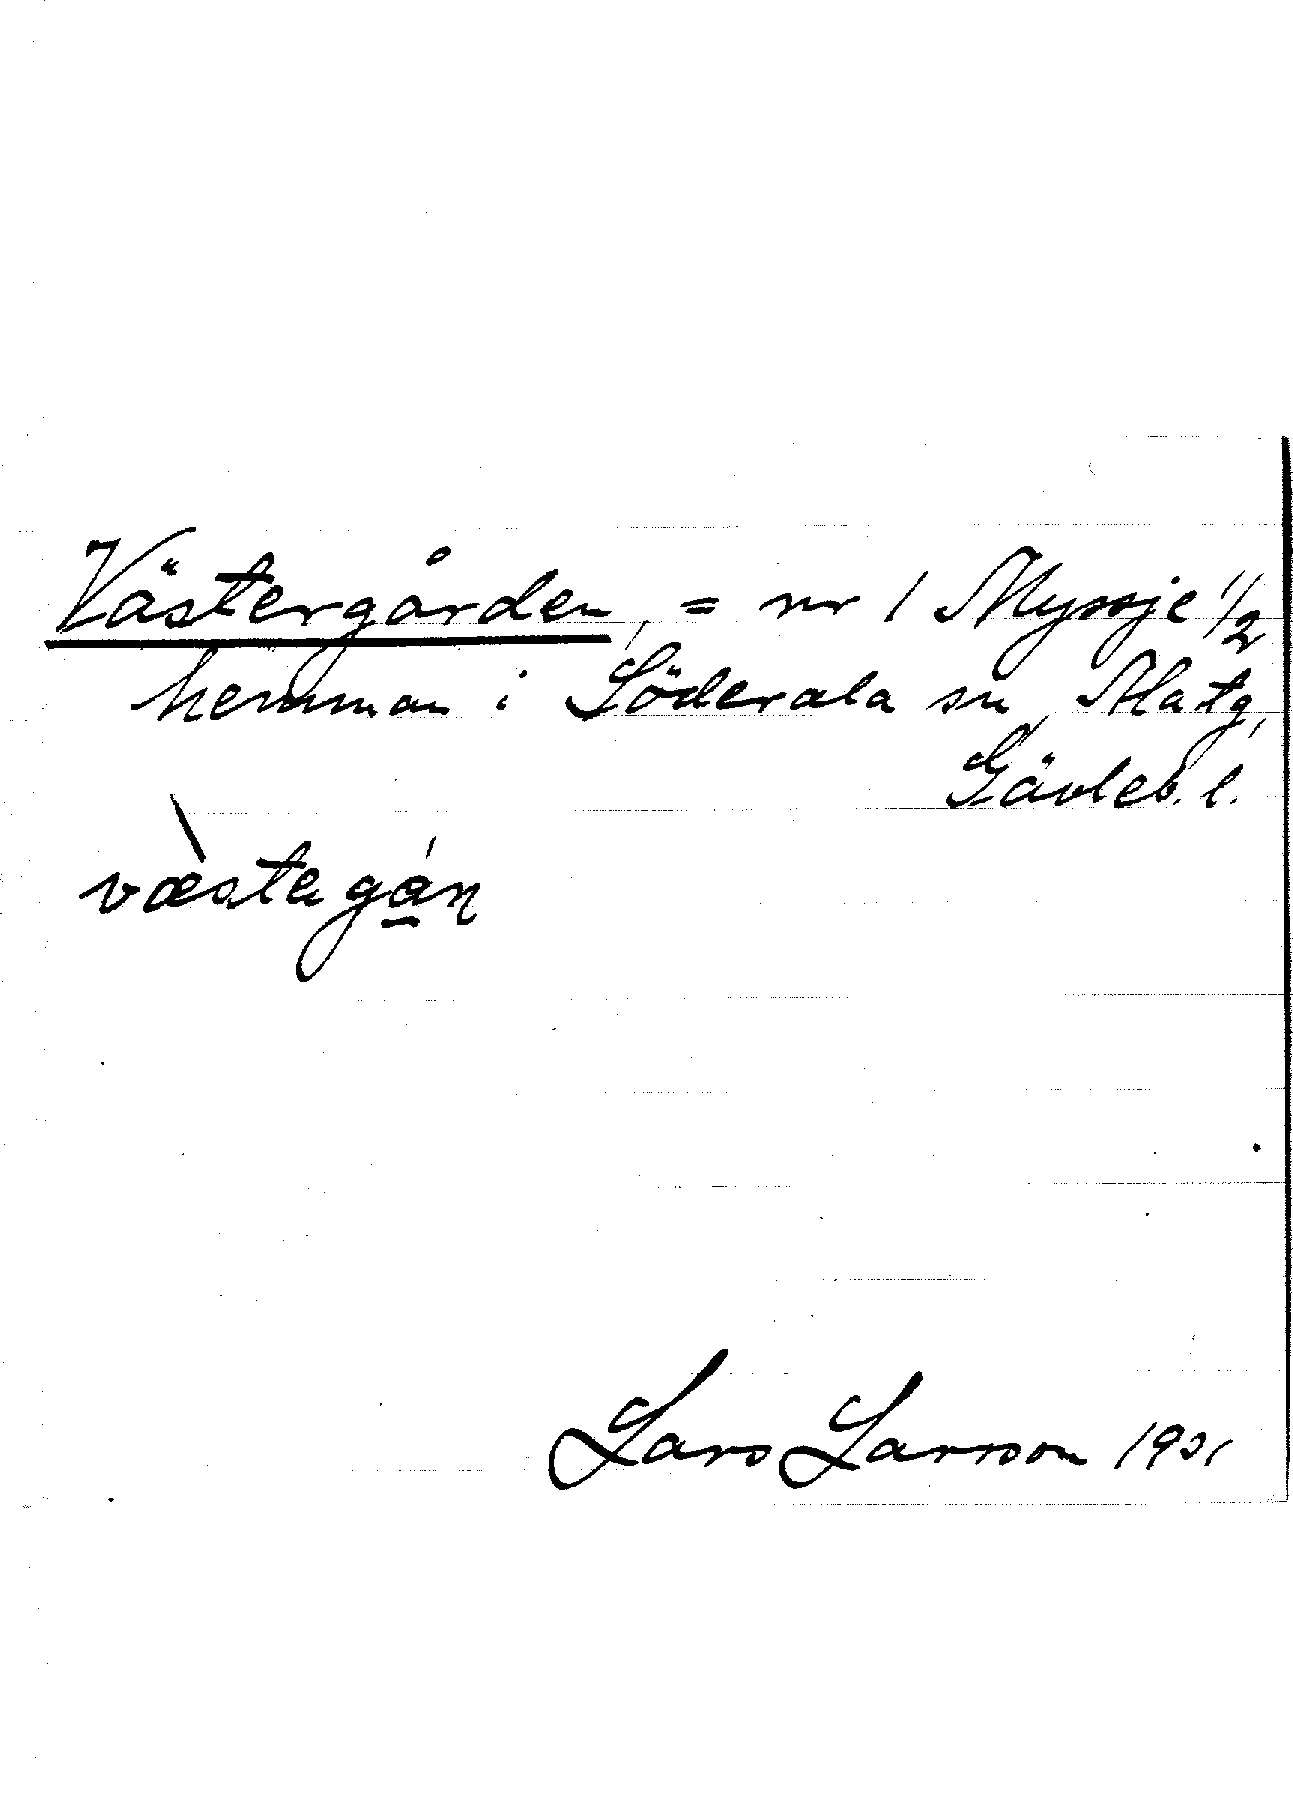 Västergården, = nr 1 Myssje 1/2
hemman i Söderala sn, Ala tg,
Gävleb. l.
væ̀stagá̱n
Lars Larsson 1901